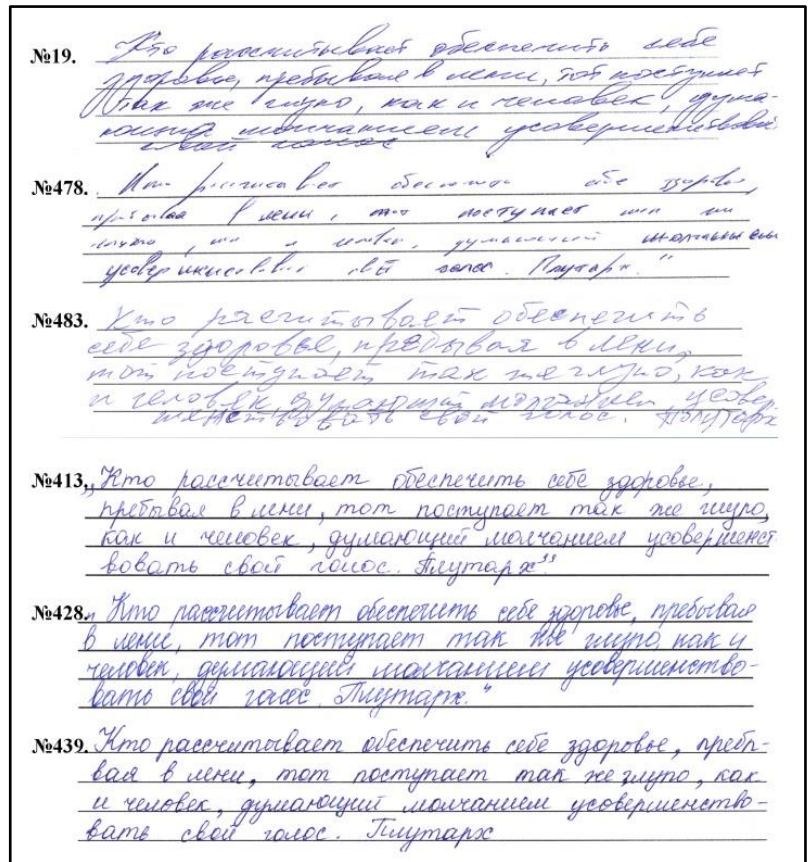 №19. Кто рассчитывает обеспечить себе
здоровье, пребывая в лени, тот поступает
так же глупо, как и человек, дума-
ющий молчанием усовершенствовать
свой голос
№478. Кто рассчитывает обеспечить себе здоровье,
пребывая в лени, тот поступает так же
глупо, как и человек, думающий молчанием
усовершенствовать свой голос. Плутарх."
№483. Кто расчитывает обеспечить
себе здоровье, пребывая в лени,
тот поступает так же глупо, как
и человек, думающий молчанием усовер
шенствовать свой голос. Плутарх
№413. „Кто рассчитывает обеспечить себе здоровье,
пребывая в лени, тот поступает так же глупо,
как и человек, думающий молчанием усовершенст
вовать свой голос. Плутарх"
№428. „Кто рассчитывает обеспечить себе здоровье, пребывая
в лени, тот поступает так же глупо, как и
человек, думающий молчанием усовершенство-
вать свой голос. Плутарх."
№439. Кто рассчитывает обеспечить себе здоровье, пребы-
вая в лени, тот поступает так же глупо, как
и человек, думающий молчанием усовершенство-
вать свой голос. Плутарх